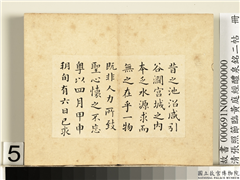 昔之池沼咸引
谷澗宮城之内
本乏水源求而
無之在乎一物
既非人力所致
聖心懷之不忘
粵以四月甲申
朔旬有六日己亥
5
故書000691N000000000
清張照節臨黃庭經醴泉銘二帖 冊
國立故宮博物院